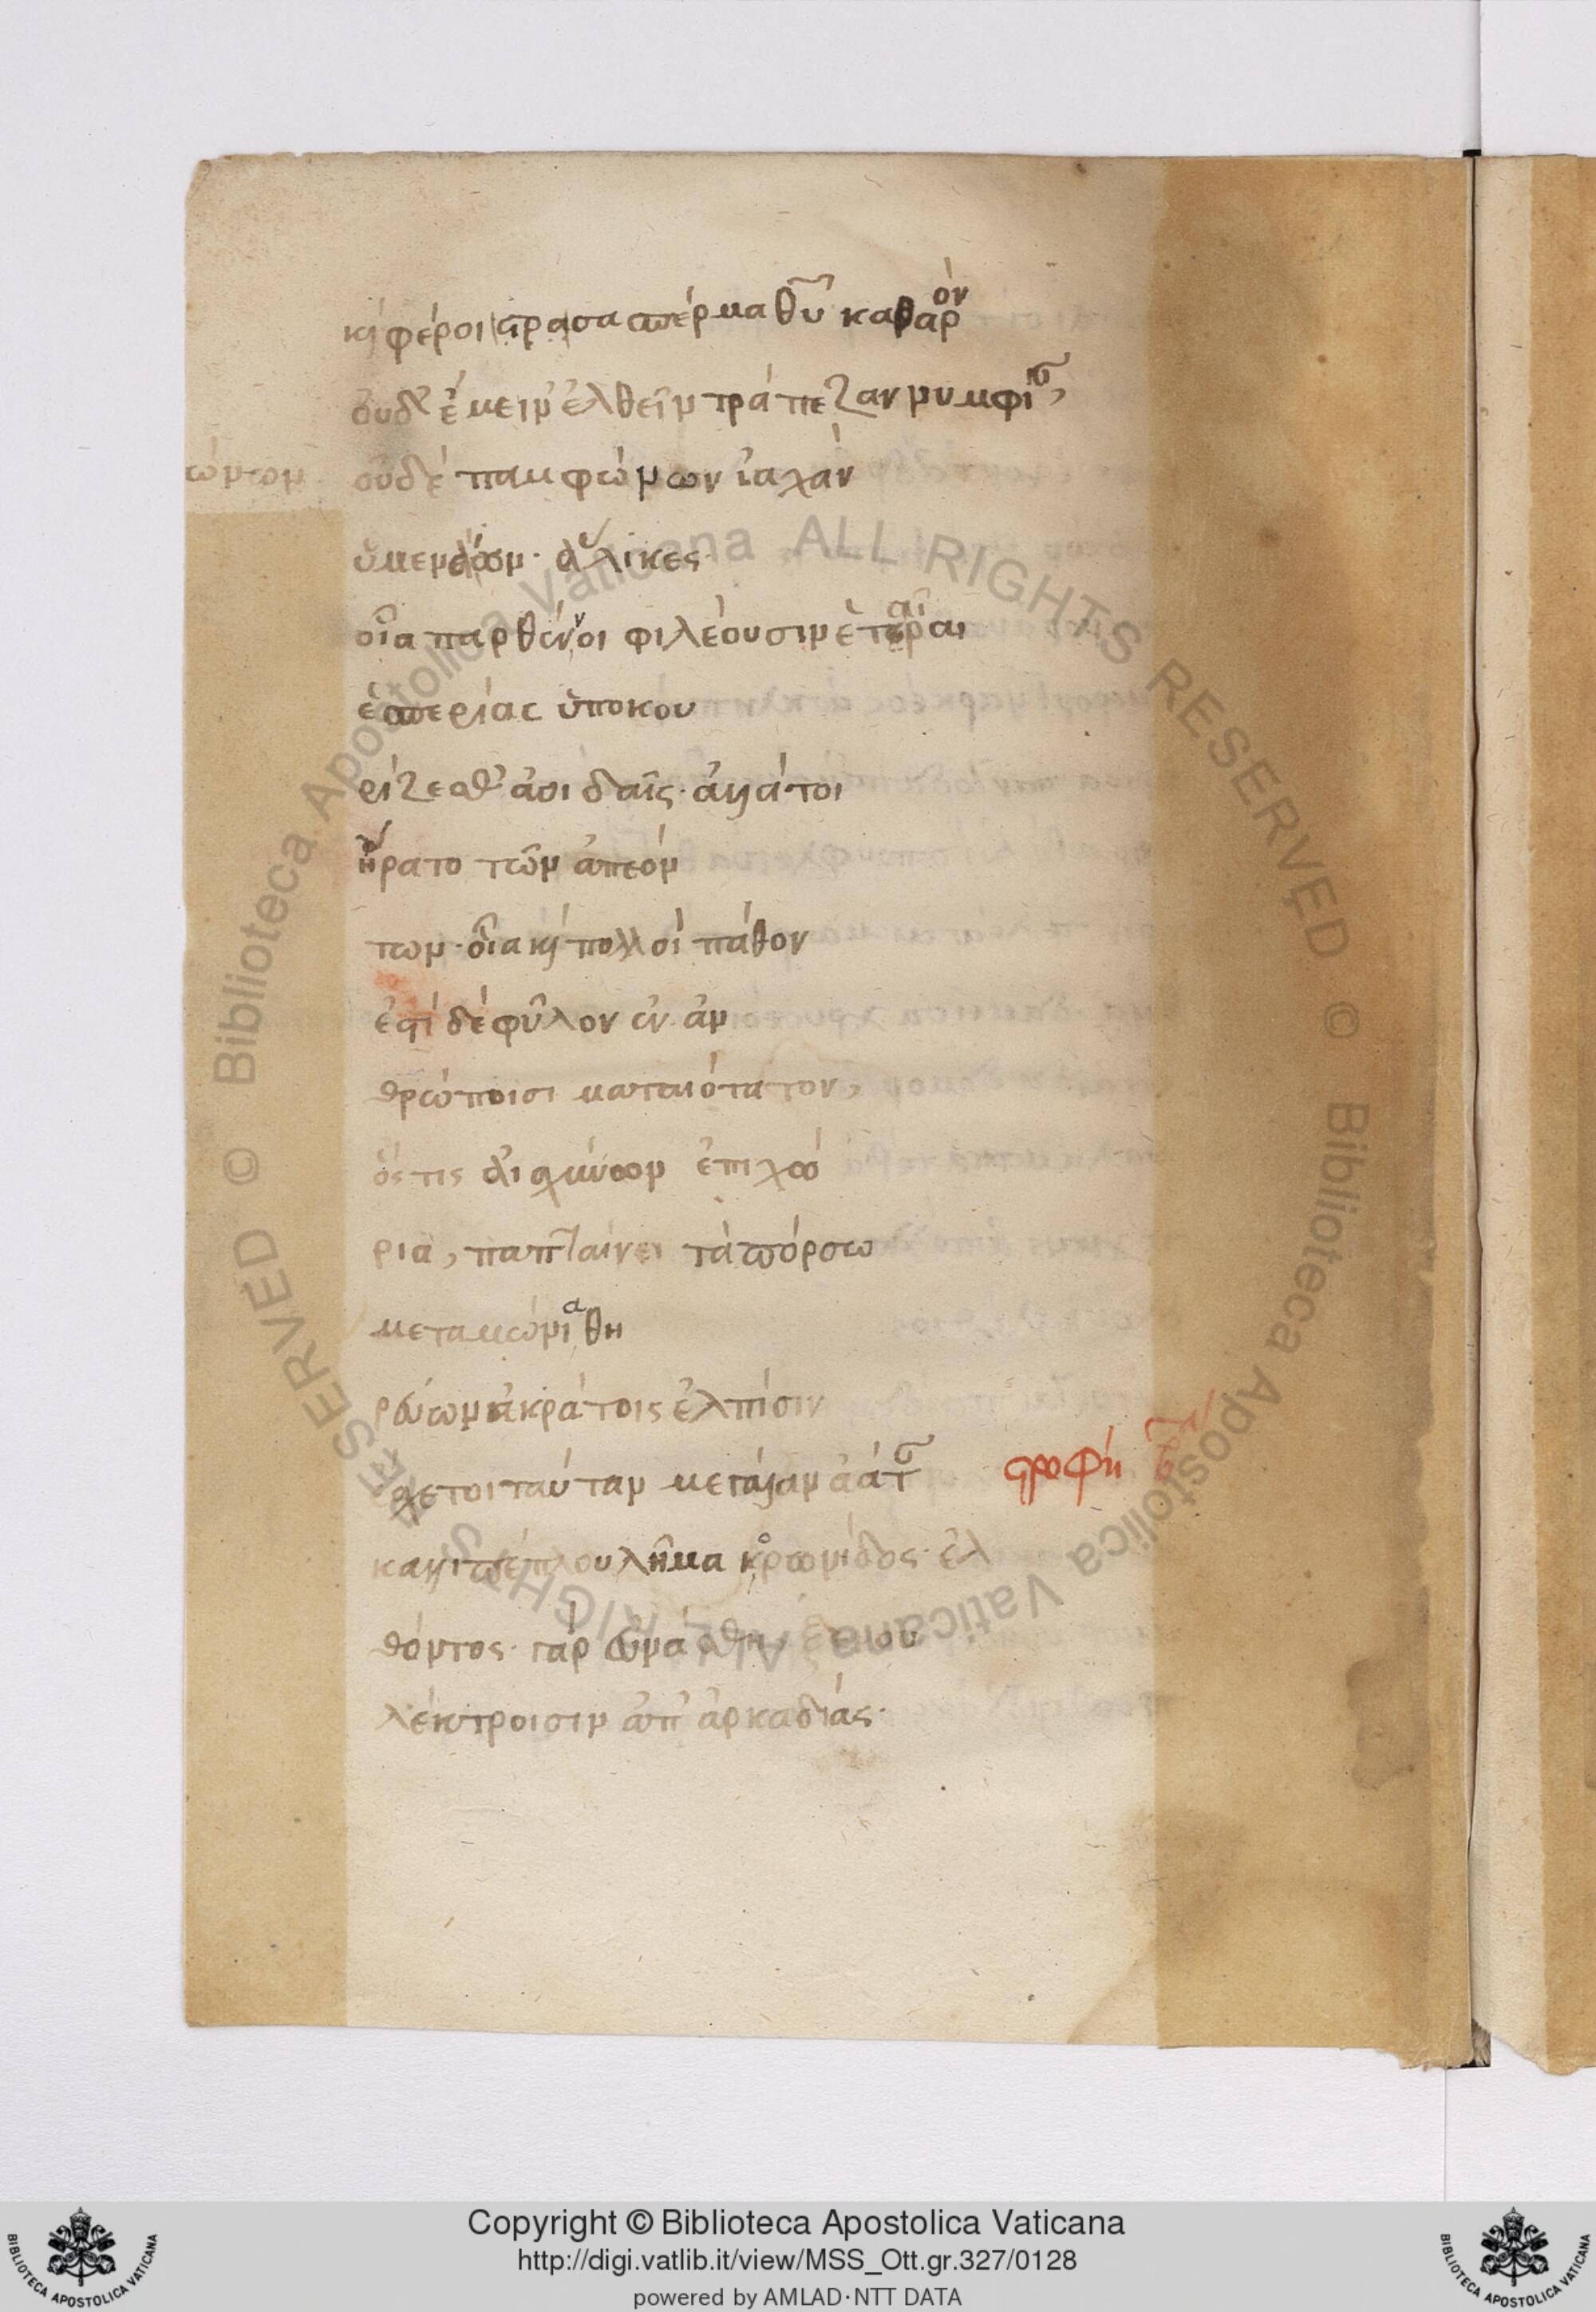 καὶ φέροισα σπέρμα θῦ καθαρόν
οὐδ' ἔμειν' ἐλθεῖν τράπεζαν νυμφί
ώντων οὐδὲ παμφώνων ἰαχὰν
ὑμεναίων· ἅλικες
οἷα παρθένοι φιλέουσιν ἑταῖραι
ἑσπερίας ὑποκου
ρίζεσθ' ἀοιδαῖς· ἀλλά τοι
ἤρατο τῶν ἀπεόν
των· οἷα καὶ πολλοὶ πάθον
ἐστὶ δὲ φῦλον ἐν ἀν
θρώποισι ματαιότατον,
ὅς τις αἰσχύνων ἐπιχώ
ρια, παπταίνει τὰ πόρσω
μεταμώνια θη
ρεύων ἀκράτοις ἐλπίσιν
σχε τοι ταύταν μεγάλαν ἀάτ
στροφή
καλλιπέπλου λῆμα κορωνίδος· ἐλ
θόντος· γὰρ εὐνάσθη
λέκτροισιν ἀπ' ἀρκαδίας·
Copyright © Biblioteca Apostolica Vaticana
http://digi.vatlib.it/view/MSS_Ott.gr.327/0128
powered by AMLAD·NTT DATA
BIBLIOTECA APOSTOLICA VATICANA
BIBLIOTECA APOSTOLICA VATICANA
© Biblioteca Apostolica Vaticana ALL RIGHTS RESERVED
© Biblioteca Apostolica Vaticana ALL RIGHTS RESERVED